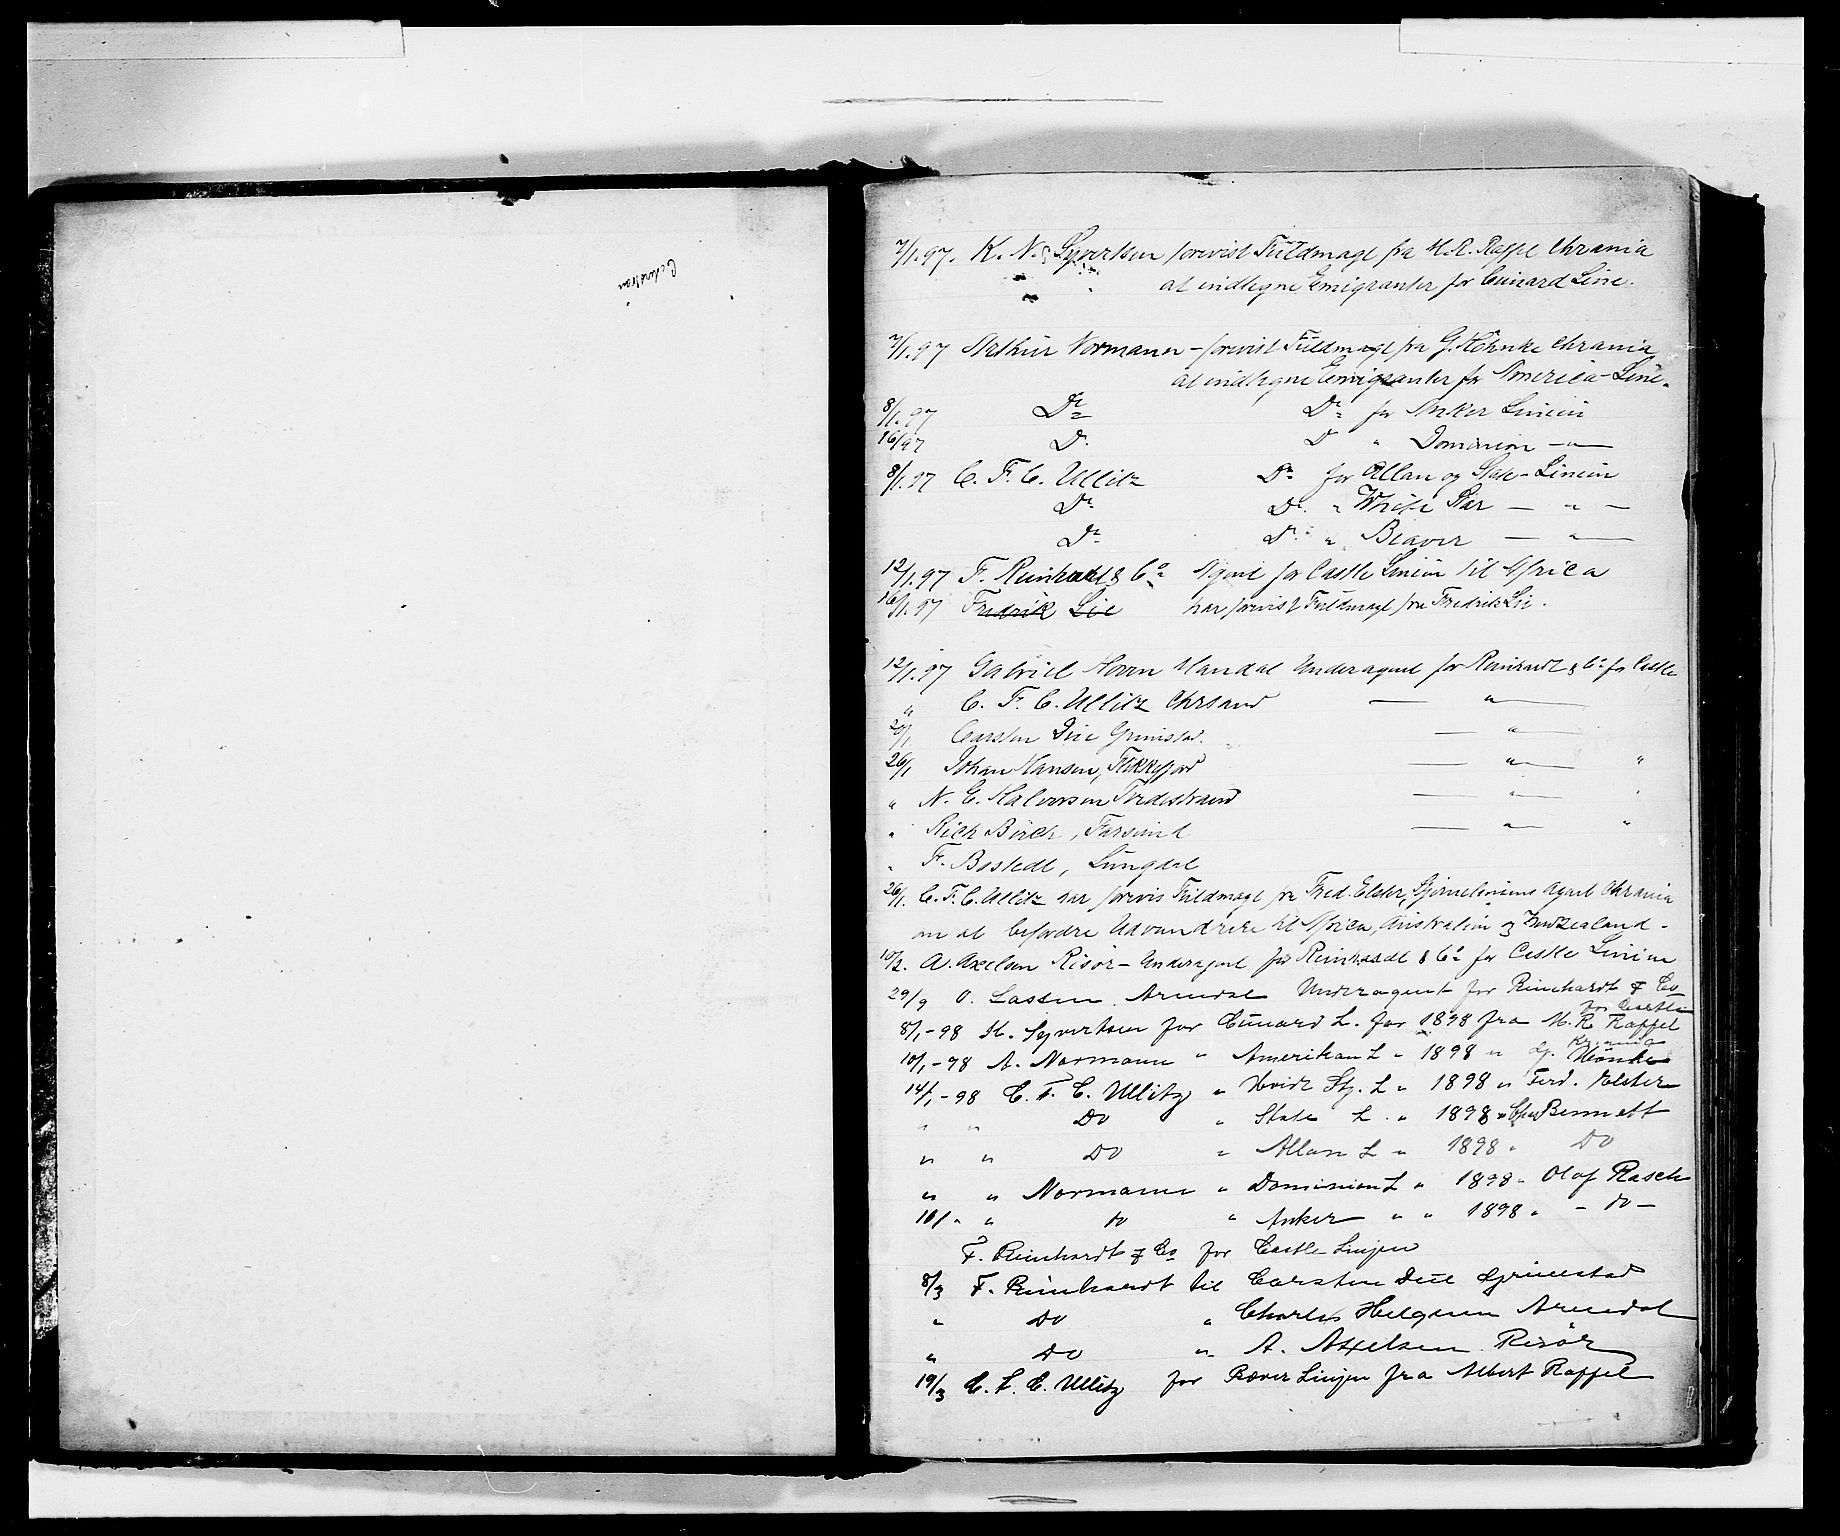 7/1.97. K. N. Syvertsen forevist Fuldmagt fra M.R. Raffel Chrania
at indtegne Emigranter for Cunard Line.
7/1.97 Arthur Normann - forevist Fuldmagt fra G. Höhnke Chrania
at indtegne Emigranter for America-Line.
8/1.97 Do Do for Anker Linien
16/97 Do D " Dominion — " —
8/1.97 C. F. C. Ullitz Do for Allan og State-Linien
Do Do. " White Star — " —
Do Do " Beaver — " —
12/1.97 F. Reinhardt & Co Agent for Castle Linien til Africa
16/1.97 Fredrik Lie har forevist Fuldmagt fra Fredrik Lie.
12/1.97 Gabriel Hovn Mandal Underagent for Reinhardt & Co for Castle
" C. F. C. Ullitz Chrsand — " —
20/1 Carsten Due Grimstad. — " —
26/1 Johan Hansen, Flekkefjord — " — "
" N. E. Halvorsen Tvedestrand — " — "
" Rich Birch, Farsund — " — "
" Fr. Bostedt, Lyngdal
26/1. C. F. C. Ullitz har forevis Fuldmagt fra Fred. Elster, Stjerneliniens Agent Chrania
om at befordre Udvandrere til Africa, Australien og Zealand -
10/2. A. Axelsen Risör - Underagent for Reinhardt & Co for Castle Linien
29/9 O. Lassen Arendal Underagent for Reinhardt & Co
for Castle
8/1-98 H. Syvertsen for Cunard L. for 1898 fra M. R. Raffel
Krania
10/1-98 A. Normann " Amerikan L " 1898 " G. Hönke
14/1-98 C. F. C. Ullitz " Hvide Stj. L " 1898 " Ferd. Elster
" " Do " State L. " 1898 " Bennett
" " Do " Allan L " 1898 " Do
" " Normann " Dominion L " 1898 " Olaf Rasch
10/ " " Do " Anker " " 1898 " - Do -
F. Reinhardt & Co for Castle-Linjen
8/3 F. Reinhardt til Carsten Due Grimestad
" Do " Charles Helgesen Arendal
" Do " A. Axelsen Risör
19/3 C. F. C. Ullitz for Bæver Linjen fra Albert Raffel